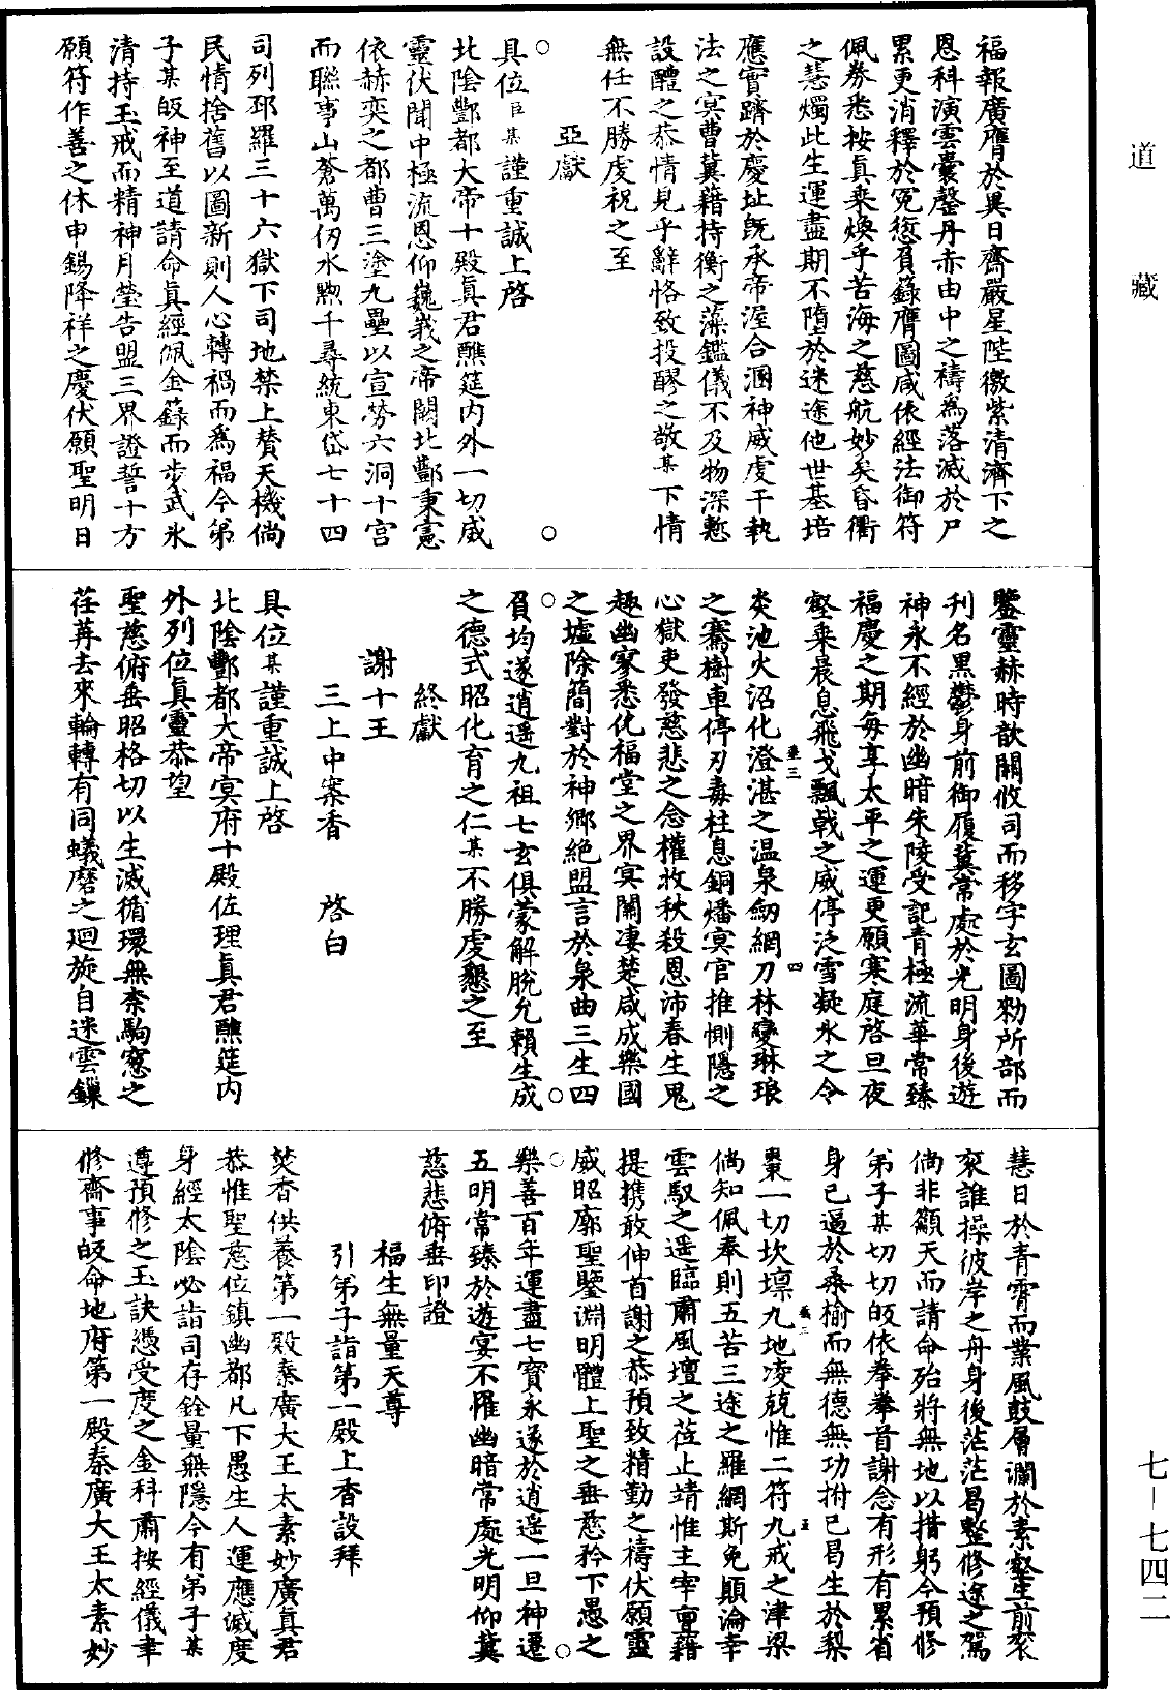 道藏
福報廣膺於異日齋嚴星陛徹紫清濟下之
恩科演雲囊罄丹赤由中之禱為落滅於尸
累更消釋於冤愆負籙膺圖咸依經法御符
佩券悉按真乘煥乎苦海之慈航妙矣昏衢
之慧燭此生運盡期不墮於迷途他世基培
應實躋於慶址既承帝渥合溷神威虔干執
法之冥曹冀藉持衡之藻鑑儀不及物深慙
設醴之恭情見乎辭恪致投醪之敬某下情
無任不勝虔祝之至
亞獻
具位臣某謹重誠上啓
北陰酆都大帝十殿眞君醮筵内外一切威
靈伏聞中極流恩仰巍峩之帝闕北酆秉憲
依赫奕之都曹三塗九壘以宣勞六洞十宮
而聯事山蒼萬仞水黝千尋統東岱七十四
司列邳羅三十六獄下司地禁上賛天機倘
民情捨舊以圖新則人心轉禍而爲福今弟
子某皈神至道請命眞經佩金籙而步武氷
清持玉戒而精神月瑩告盟三界證誓十方
願符作善之休申錫降祥之慶伏願聖明日
鑒靈赫時歆關攸司而移字玄圖勑所部而
刊名黑鬱身前御履冀常處於光明身後遊
神永不經於幽暗朱陵受記青極流華常臻
福慶之期每享太平之運更願寒庭啓旦夜
壑乘晨息飛戈飄戟之威停泛雪凝氷之令
炎池火沼化澄湛之温泉劒網刀林變琳琅
之騫樹車停刃毒柱息銅燔冥官推惻隱之
心獄吏發慈悲之念權收秋殺恩沛春生鬼
趣幽寥悉化福堂之界冥關凄楚咸成樂國
之墟除簡對於神鄉絶盟言於泉曲三生四
負均遂逍遥九祖七玄俱蒙解脱允賴生成
之德式昭化育之仁某不勝虔懇之至
終獻
謝十王
三上中案香　啓白
具位某謹重誠上啓
北陰酆都大帝冥府十殿佐理眞君醮筵内
外列位眞靈恭望
聖慈俯垂昭格切以生滅循環無柰駒窓之
荏苒去來輪轉有同蟻磨之廻旋自迷雲鏁
慧日於青霄而業風鼓層瀾於素壑生前衮
衮誰操彼岸之舟身後茫茫曷整修途之駕
倘非籲天而請命殆將無地以措躬今預修
弟子某切切皈依拳拳首謝念有形有累省
身已逼於桑榆而無德無功拊已曷生於梨
棗一切坎壈九地凌兢惟二符九戒之津梁
倘知佩奉則五苦三途之羅網斯免顛淪幸
雲馭之遥臨肅風壇之莅止靖惟主宰亶藉
提携敢伸首謝之恭預致精勤之禱伏願靈
威昭廓聖鑒淵明體上聖之垂慈矜下愚之
樂善百年運盡七寳永遂於逍遥一旦神遷
五明常臻於遊宴不罹幽暗常處光明仰冀
慈悲俯垂印證
福生無量天尊
引弟子詣第一殿上香設拜
焚香供養第一殿秦廣大王太素妙廣眞君
恭惟聖慈位鎮幽都凡下愚生人運應滅度
身經太陰必詣司存銓量無隱今有弟子某
遵預修之玉訣憑受度之金科肅按經儀聿
修齋事皈命地府第一殿秦廣大王太素妙
七-七四二